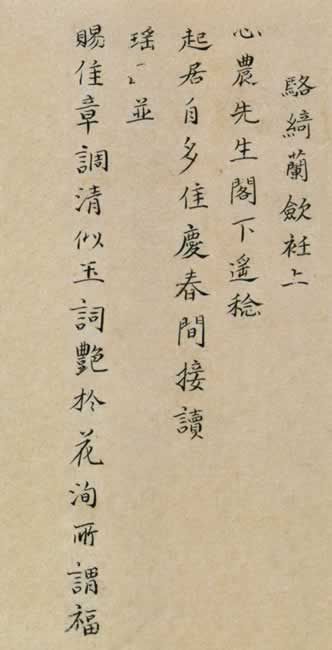 駱綺蘭歛衽上
心農先生閣下遙稔
起居自多佳慶春間接讀
瑶並
賜佳章調清似玉詞艷扵花洵所謂福